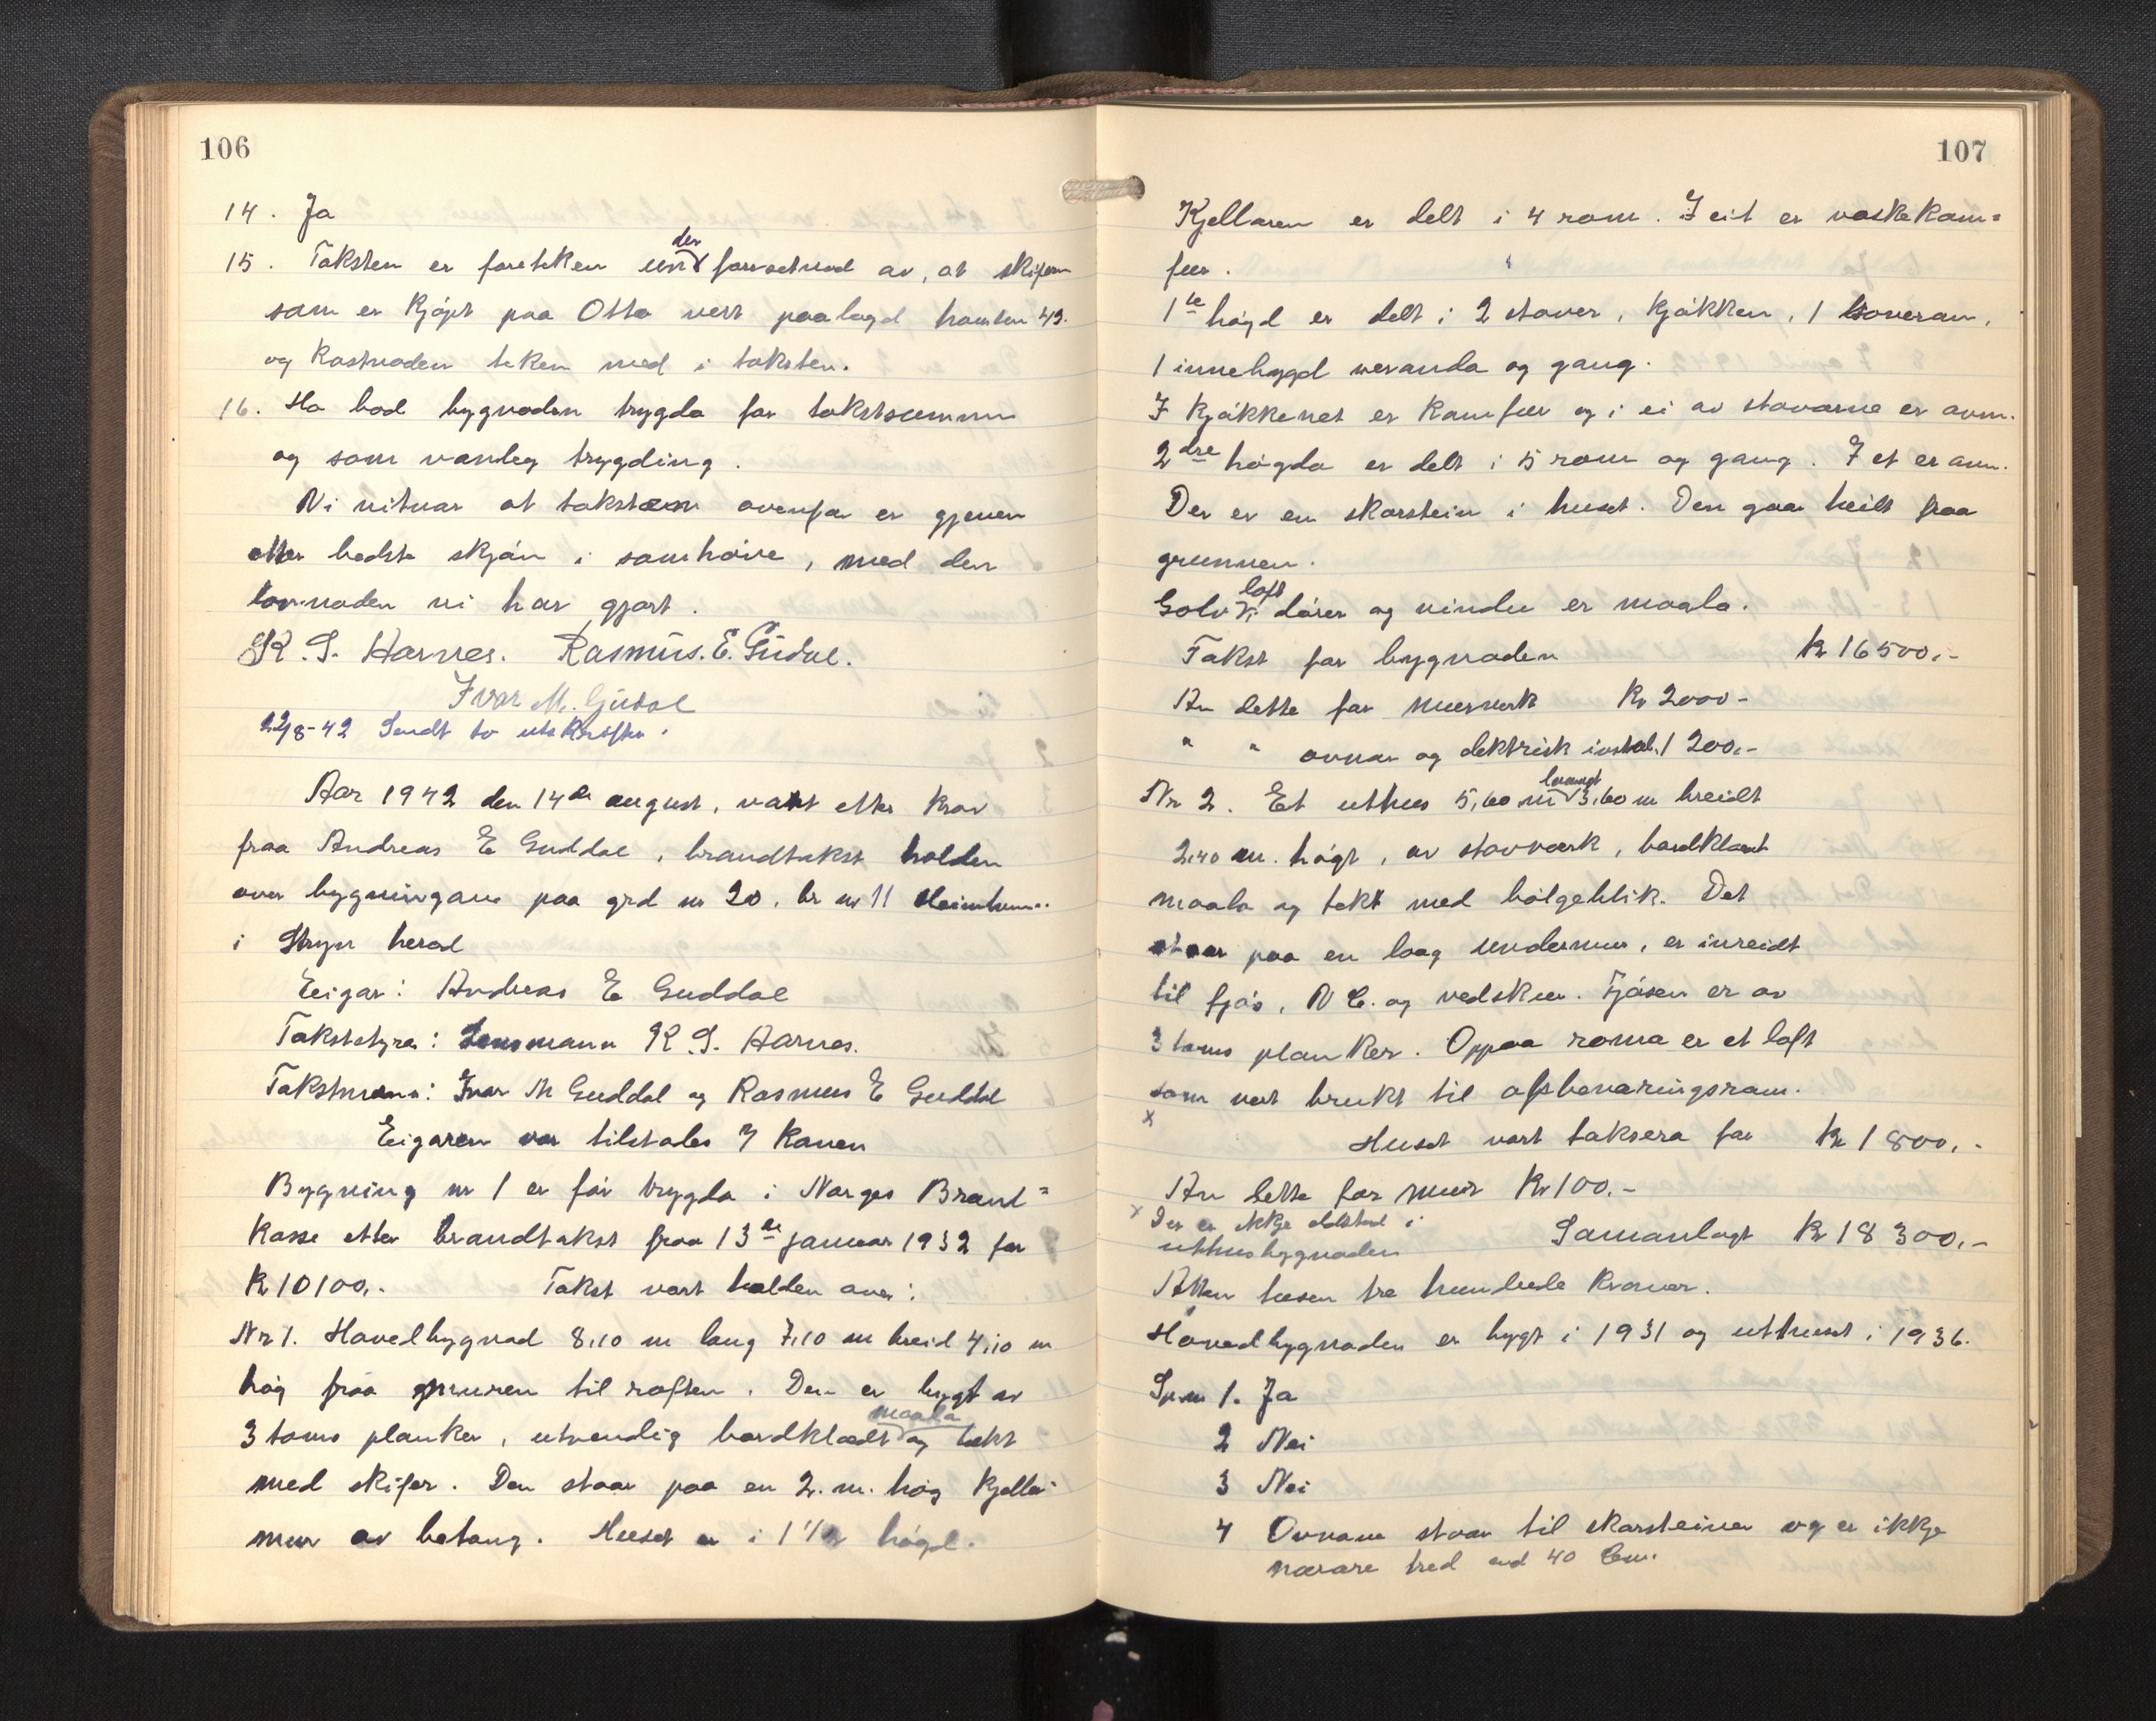 106
14. Ja
15. Taksten er foreteken under forsetnad av, at skifern
som er kjöpt paa Otta vert paalagd hausten 43.
og kostnaden teken med i taksten.
16. Ha bad bygnaden trygda for takstsummen
og som vanleg trygding.
Vi vitnar at taksten ovenfor er gjeven
etter bedste skjön i samhöve, med den
lovnaden vi har gjort.
K. S. Harnes. Rasmus. E. Gudal.
Ivar M. Gudal
22/8-42 Sendt to utskrifter.
Aar 1942 den 14de august, vart etter krav
fraa Andreas E Guddal, brandtakst halden
over bygningane paa grd nr 20, br nr 11
i Stryn herad
Eigar: Andreas E Guddal
Takststyra: Lensmann K. S. Harnes.
Takstmenn: Ivar M Guddal og Rasmus E Guddal
Eigaren var tilstades
Bygning nr 1 er för trygda i Norges Brand=
kasse etter brandtakst fraa 13de januar 1932 for
Kr 10100,- Takst vart halden over:
Nr 1. Hovedbygnad 8,10 m lang 7,10 m breid 4,10 m
hög fraa gruuren til raften. Den er bygt av
3 toms planker, utvendig bordklædt maala og tekt
med skifer. Den staar paa en 2. m. hög kjeller-
mur av betong. Huset er i 1 1/2 högd.
107
Kjellaren er delt i 4 rom. I eit er vaskekom=
fur.
1te högd er delt i 2 stover, kjökken, 1 soverom,
1 innebygd veranda og gang.
I kjökkenet er komfur og i ei av stovorne er ovn.
2dre högda er delt i 5 rom og gang. I et er ovn.
Der er en skorstein i huset. Den gaar heilt fraa
grunnen.
Golv, loft, dörer og vindu er maala.
Takst for bygnaden kr 16500,-
Av dette for murverk Kr 2000-
" " ovnar og elektrisk instal. 1200,-
Nr 2. Et uthus 5,60 m langt 3,60 m breidt
2,40 m. högt, av stavverk, bordklædt
maala og tekt med bölgeblik. Det
staar paa en laag undermur, er inreidt
til fjös, V C. og vedskur. Fjösen er av
3 toms planker. Oppaa roma er et loft
som vert brukt til opbevaringsrom.
x
Huset vart taksera for kr 1800,-
Av dette for mur Kr 100.-
x Der er ikkje eldsted i
uthusbygnaden
Samanlagt Kr 18300,-
Atten tusen tre hundrede kroner.
Hovedbygnaden er bygt i 1931 og uthuset i 1936.
Spm 1. Ja
2 Nei
3 Nei
4 Ovnane staar til skorsteinen og er ikkje
nærare tred end 40 Cm.